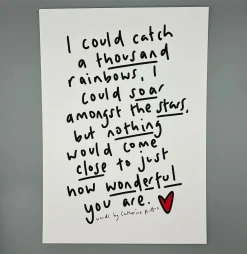 I could catch
a thousand
rainbows, I
could soar
amongst the stars,
but nothing
would come
close to just
how wonderful
you are.
words by Catherine